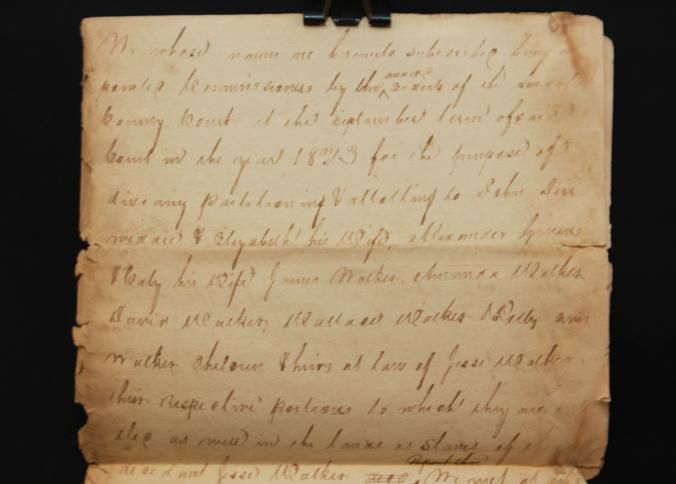 We whose names are hereunto subscribed being
Commissioners by the of the
County Court at the September term of said
Court in the year 1823 for the purpose of
dividing partitioning & allotting to John
& Elizabeth his Wife, Alexander
& Caty his Wife James Walker, Amanda Walker
David Walker, Wallace Walker & Polly ann
Walker Children & heirs at law of Jesse Walker
their respective portions to which they are
as well in the lands as Slaves of
Jesse Walker We met